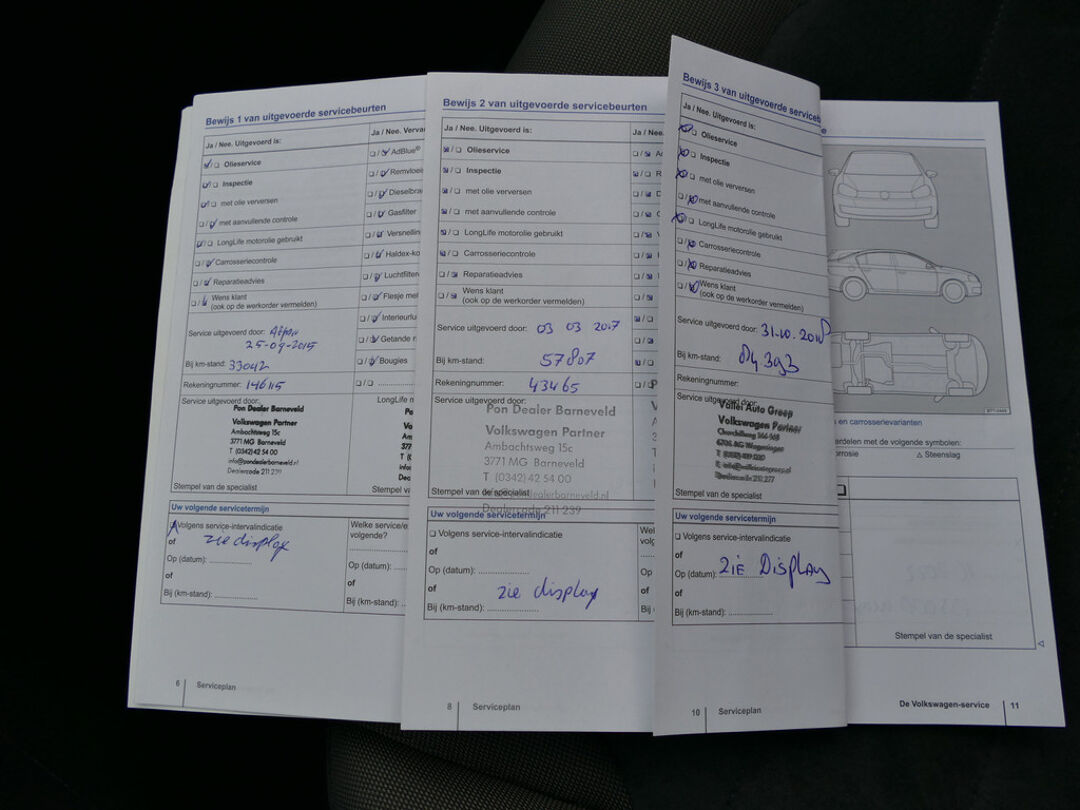 Bewijs 1 van uitgevoerde servicebeurten
Ja / Nee. Uitgevoerd is:
Olieservice
Inspectie
met olie verversen
met aanvullende controle
LongLife motorolie gebruikt
Carrosseriecontrole
Reparatieadvies
Wens klant
(ook op de werkorder vermelden)
Service uitgevoerd door:
25-09-2015
Bij km-stand: 33042
Rekeningnummer: 146115
Service uitgevoerd door:
Pon Dealer Barneveld
Volkswagen Partner
Ambachtsweg 15c
3771 MG Barneveld
T (0342) 42 54 00
info@pondealerbarneveld.nl
Dealercode 211 239
Stempel van de specialist
Uw volgende servicetermijn
Volgens service-intervalindicatie
of zie display
Op (datum):
of
Bij (km-stand):
6 Serviceplan
Ja / Nee.
AdBlue®
Gasfilter
Bougies
Welke
volgende?
Op (datum):
of
Bij (km-stand):
Bewijs 2 van uitgevoerde servicebeurten
Ja / Nee. Uitgevoerd is:
Olieservice
Inspectie
met olie verversen
met aanvullende controle
LongLife motorolie gebruikt
Carrosseriecontrole
Reparatieadvies
Wens klant
(ook op de werkorder vermelden)
Service uitgevoerd door: 03 03 2017
Bij km-stand: 57807
Rekeningnummer: 43465
Service uitgevoerd door:
Pon Dealer Barneveld
Volkswagen Partner
Ambachtsweg 15c
3771 MG Barneveld
T (0342) 42 54 00
Stempel van de specialist
Dealercode 211 239
Uw volgende servicetermijn
Volgens service-intervalindicatie
of
Op (datum):
of zie display
Bij (km-stand):
8 Serviceplan
Bewijs 3 van uitgevoerde
Ja / Nee. Uitgevoerd is:
Olieservice
Inspectie
met olie verversen
met aanvullende controle
LongLife motorolie gebruikt
Carrosseriecontrole
Reparatieadvies
Wens klant
(ook op de werkorder vermelden)
Service uitgevoerd door: 31-10-2018
Bij km-stand: 84393
Rekeningnummer:
Service uitgevoerd door:
Vallei Auto Groep
Volkswagen Partner
Stempel van de specialist
Uw volgende servicetermijn
Volgens service-intervalindicatie
of
Op (datum): ZIE Display
of
Bij (km-stand):
10 Serviceplan
en carrosserievarianten
met de volgende symbolen:
△ Steenslag
Stempel van de specialist
De Volkswagen-service 11